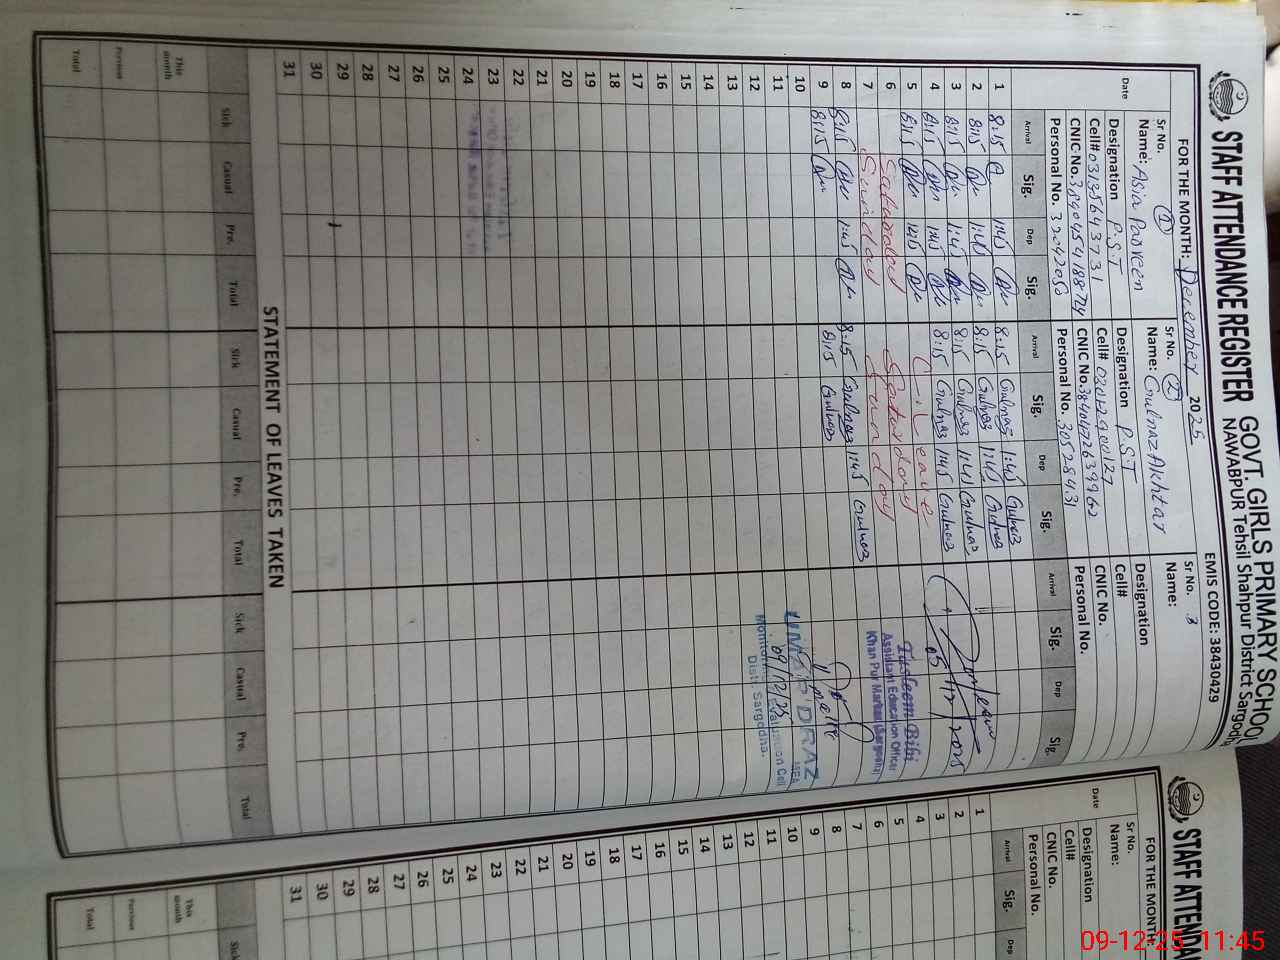 STAFF ATTENDANCE REGISTER GOVT. GIRLS PRIMARY SCHOOL
NAWABPUR Tehsil Shahpur District Sargodha
FOR THE MONTH: December 2025 EMIS CODE: 38430429
Sr No. 1 Sr No. 2 Sr No. 3
Name: Asia Parveen Name: Gulnaz Akhtar Name:
Designation P.S.T Designation P.S.T Designation
Cell# 03135643731 Cell# Cell#
CNIC No. CNIC No. CNIC No.
Personal No. Personal No. 30528431 Personal No.
Date Arrival Sig. Dep Sig. Arrival Sig. Dep Sig. Arrival Sig. Dep Sig.
1 8:15 1:45 8:15 Gulnaz 1:45 Gulnaz
2 8:15 1:45 8:15 Gulnaz 1:45 Gulnaz
3 8:15 1:45 8:15 Gulnaz 1:45 Gulnaz
4 8:15 1:45 8:15 Gulnaz 1:45 Gulnaz
5 8:15 C.Leave
6 Saturday Saturday
7 Sunday Sunday
8 8:15 1:45 8:15 Gulnaz 1:45 Gulnaz
9 8:15 8:15 Gulnaz
10
11
12
13
14
15
16
17
18
19
20
21
22
23
24
25
26
27
28
29
30
31
Tasleem Bibi
Assistant Education Officer
Khan Pur Markaz (Sargodha)
UMAR DRAZ
MEA
09/12/25
Monitoring Evaluation Cell
Distt. Sargodha.
STATEMENT OF LEAVES TAKEN
Sick Casual Pre. Total Sick Casual Pre. Total Sick Casual Pre. Total
This month
Previous
Total
STAFF ATTENDA
FOR THE MONTH:
Sr No.
Name:
Designation
Cell#
CNIC No.
Personal No.
Date Arrival Sig. Dep
1
2
3
4
5
6
7
8
9
10
11
12
13
14
15
16
17
18
19
20
21
22
23
24
25
26
27
28
29
30
31
Sick
This month
Previous
Total
09-12-25 11:45